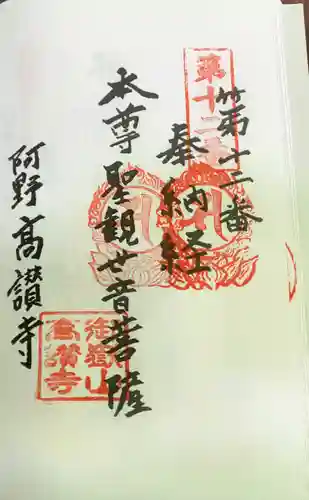 第十二番
奉納経
本尊聖観世音菩薩
阿野高讃寺
第十二番
御嶽山
高讃寺